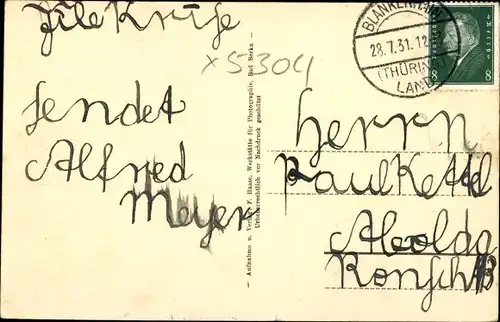 sendet
Alfred
Meyer
x5304
Aufnahme u. Verlag F. Haase, Werkstätte für Photographie, Bad Berka.
Urheberrechtlich vor Nachdruck geschützt
BLANKENHAIN
28.7.31.12
(THÜRING.)
LAND
8 8
Herrn
Paul
Apolda